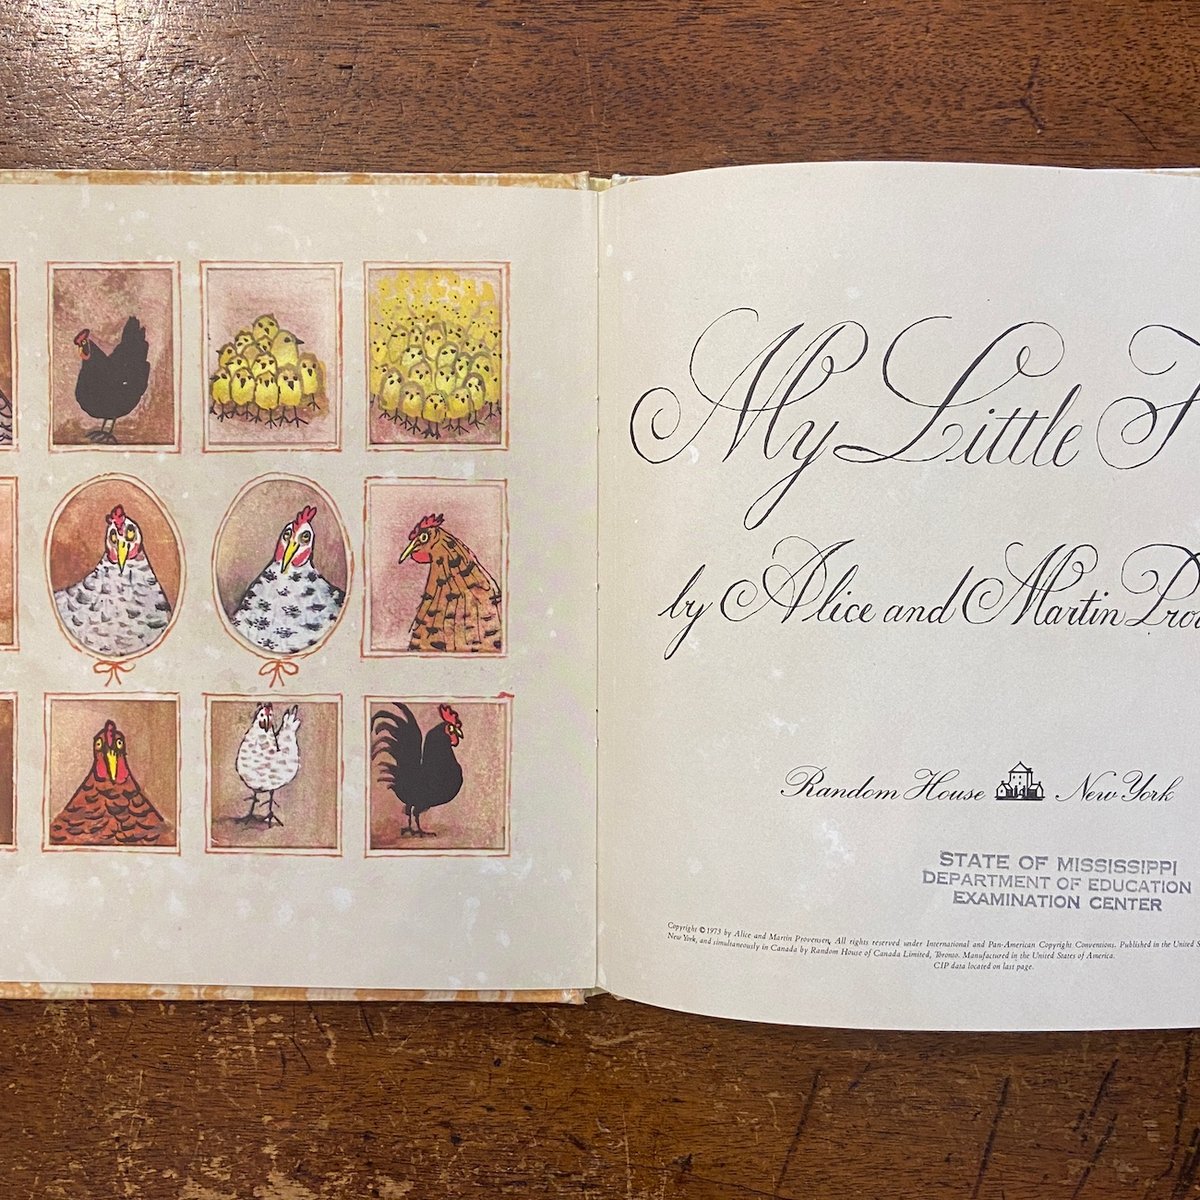 My Little
by Alice and Martin
Random House New York
STATE OF MISSISSIPPI
DEPARTMENT OF EDUCATION
EXAMINATION CENTER
Copyright © 1973 by Alice and Martin Provensen. All rights reserved under International and Pan-American Copyright Conventions. Published in the United
New York, and simultaneously in Canada by Random House of Canada Limited, Toronto. Manufactured in the United States of America.
CIP data located on last page.